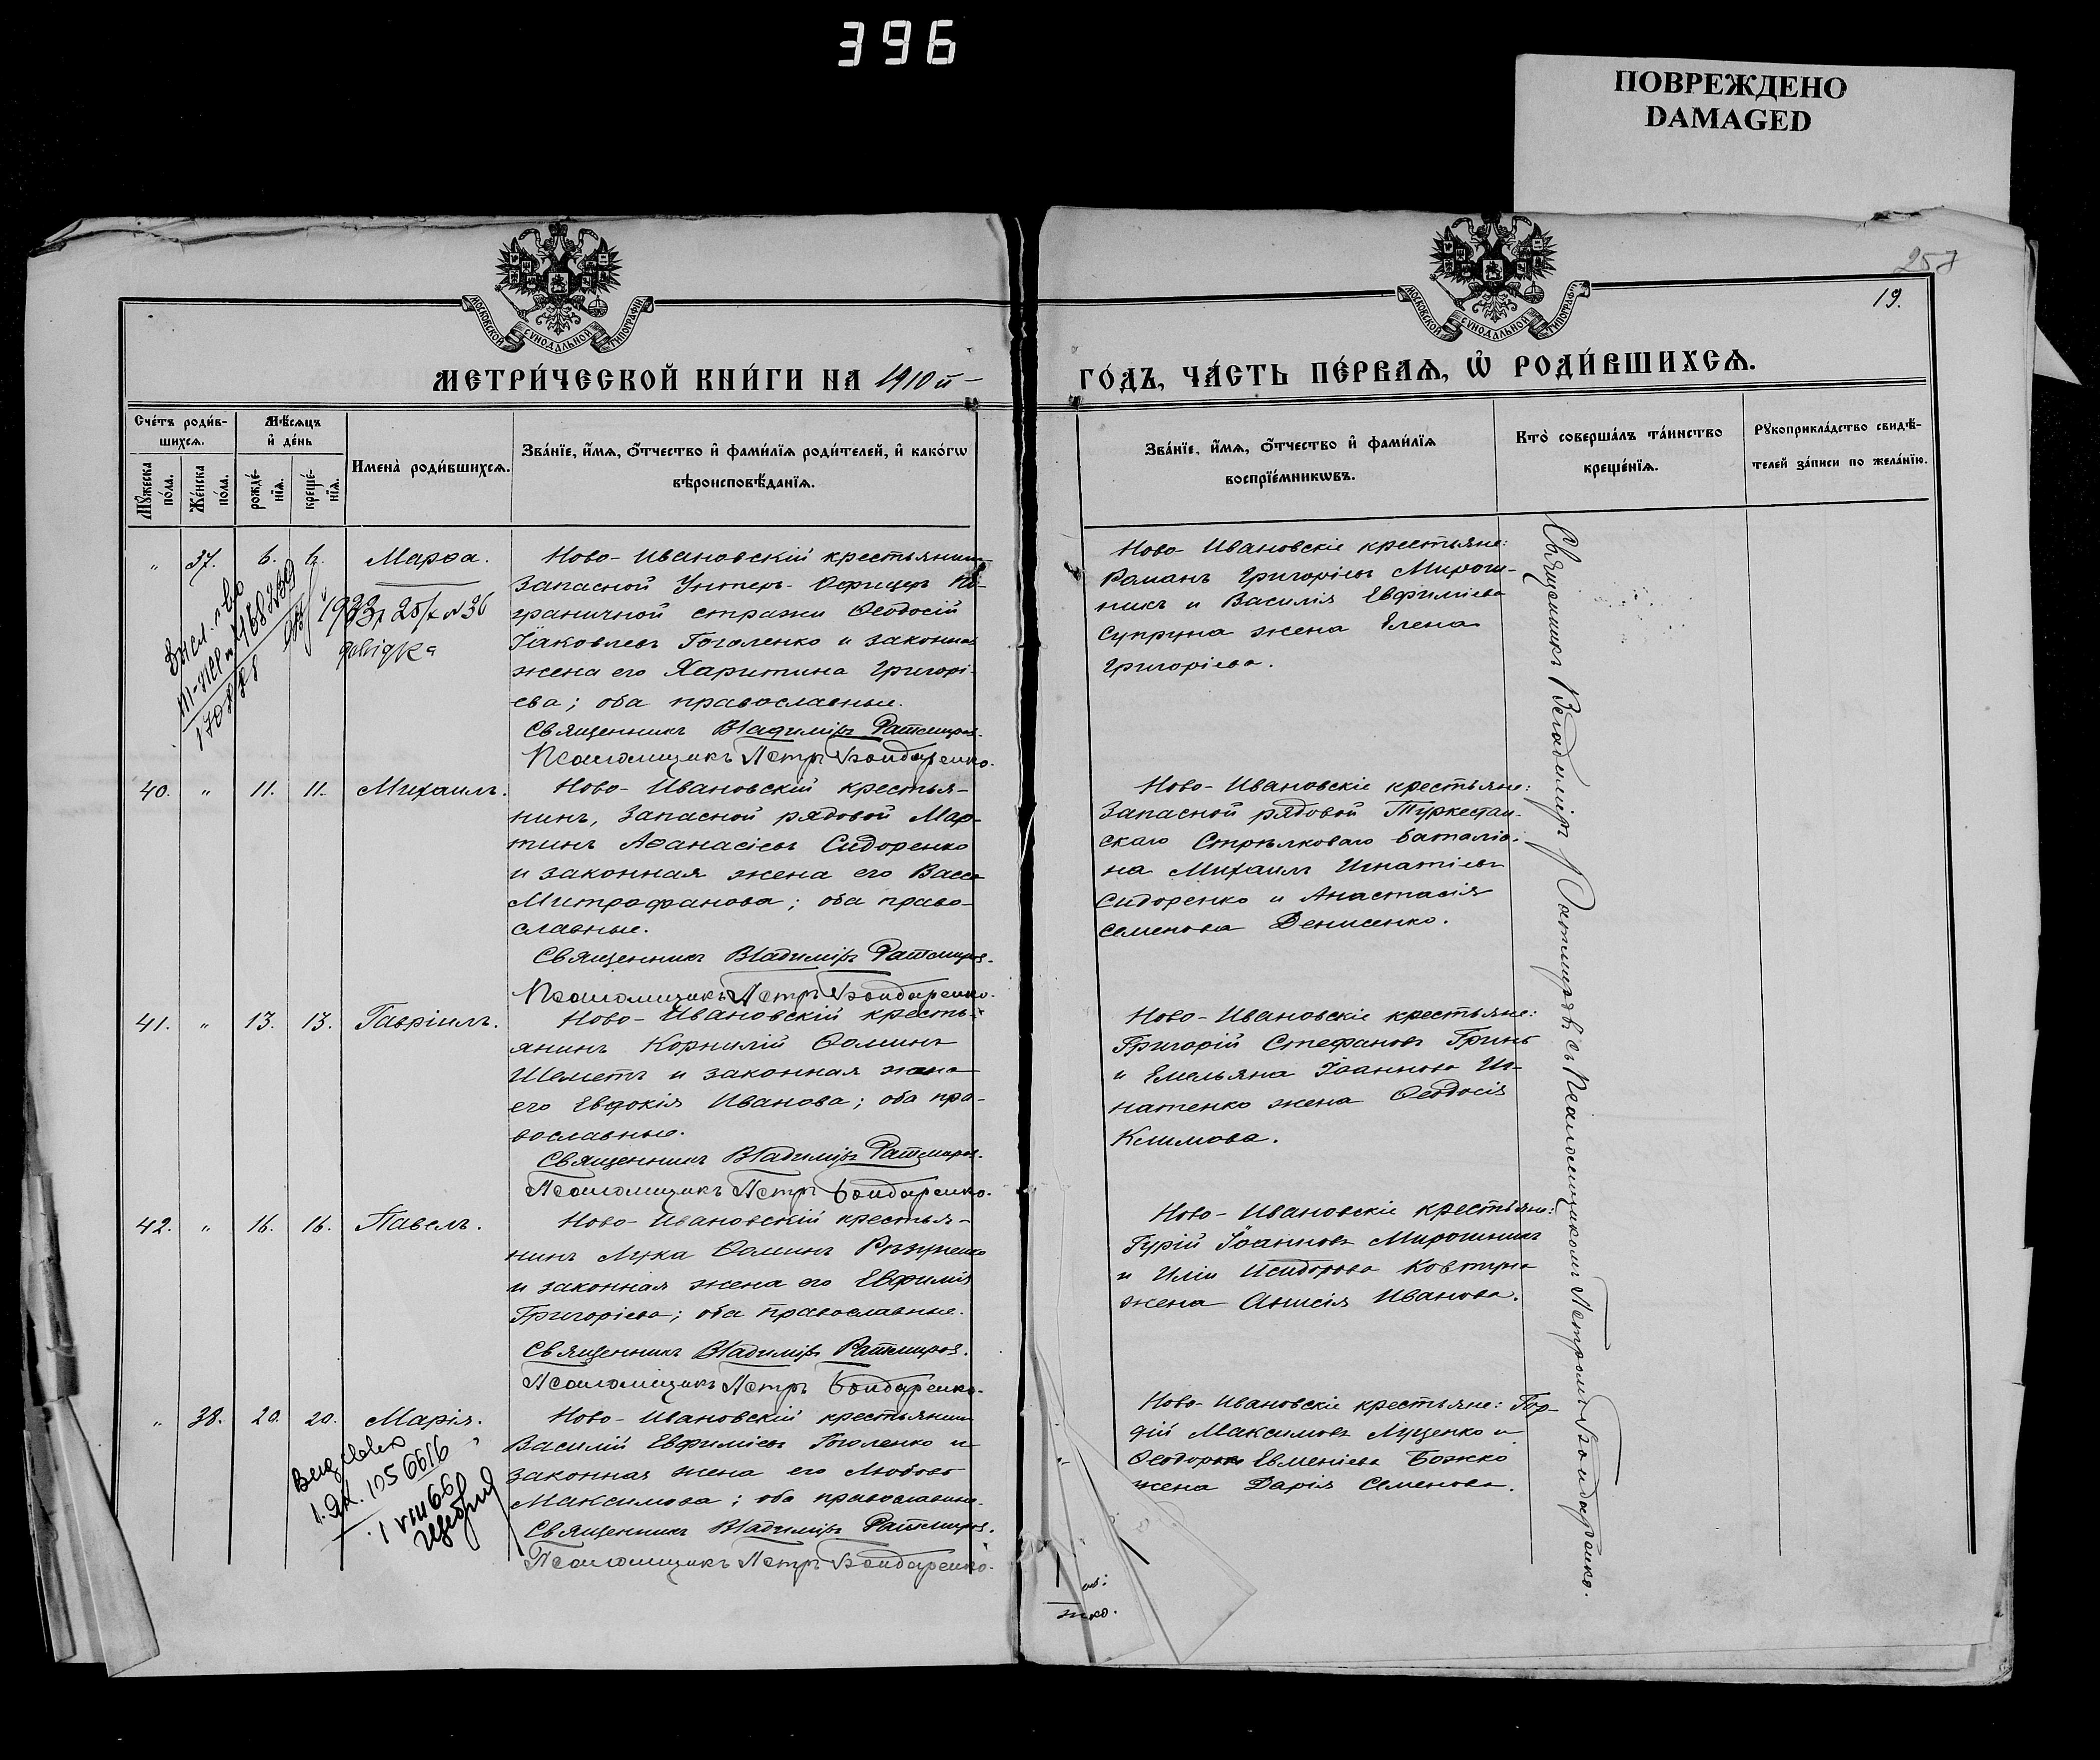 396
ПОВРЕЖДЕНО
DAMAGED
258
19.
МОСКОВСКОЙ СѴНОДАЛЬНОЙ ТИПОГРАФІИ
МОСКОВСКОЙ СѴНОДАЛЬНОЙ ТИПОГРАФІИ
МЕТРИ́ЧЕСКОЙ КНИ́ГИ НА 1910й
ГО́ДЪ, ЧА́СТЬ ПЕ́РВАѦ, Ѡ҆ РОДИ́ВШИХСѦ.
Сче́тъ роди́в-
шихсѧ.
Мѣ́сѧцъ
и҆ де́нь
Мꙋ́жеска
по́ла.
Же́нска
по́ла.
рожде́-
нїѧ.
креще́-
нїѧ.
Имена̀ роди́вшихсѧ.
Зва́нїе, и҆́мѧ, ѻ҆́тчество и҆ фами́лїѧ роди́телей, и҆ како́гѡ
вѣроисповѣ́данїѧ.
Зва́нїе, и҆́мѧ, ѻ҆́тчество и҆ фами́лїѧ
воспрїе́мникѡвъ.
Кто̀ соверша́лъ та́инство
креще́нїѧ.
Рꙋкоприкла́дство свидѣ́-
телей за́писи по жела́нїю.
„ 37. 6. 6. Марѳа.
Ново-Ивановскій крестьянинъ
Запасной Унтеръ-Офицеръ По-
граничной стражи Ѳеодосій
Іаковлевъ Гоголенко и законная
жена его Харитина Григорі-
ева; оба православные.
Священникъ Владиміръ Ратмировъ.
Псаломщикъ Петръ Бондаренко.
Ново-Ивановскіе крестьяне:
Романъ Григорієвъ Мирош-
никъ и Василія Евфиміева
Супруна жена Елена
Григоріева.
25/X №36
довідка
1468839
170828
40. „ 11. 11. Михаилъ.
Ново-Ивановскій крестья-
нинъ, Запасной рядовой Мар-
тинъ Аѳанасіевъ Сидоренко
и законная жена его Васса
Митрофанова; оба право-
славные.
Священникъ Владиміръ Ратмировъ.
Псаломщикъ Петръ Бондаренко.
Ново-Ивановскіе крестьяне:
Запасной рядовой Туркестан-
скаго Стрѣлковаго баталіо-
на Михаилъ Игнатіевъ
Сидоренко и Анастасія
Семенова Денисенко.
41. „ 13. 13. Гавріилъ.
Ново-Ивановскій кресть-
янинъ Корнилій Ѳоминъ
Шеметъ и законная жена
его Евдокія Иванова; оба пра-
вославные.
Священникъ Владиміръ Ратмировъ.
Псаломщикъ Петръ Бондаренко.
Ново-Ивановскіе крестьяне:
Григорій Стефановъ Гринь
и Емельяна Іоаннова Иг-
натенко жена Ѳеодосія
Климова.
42. „ 16. 16. Павелъ.
Ново-Ивановскій крестья-
нинъ Лука Ѳоминъ Рѣзуненко
и законная жена его Евфимія
Григоріева; оба православные.
Священникъ Владиміръ Ратмировъ.
Псаломщикъ Петръ Бондаренко.
Ново-Ивановскіе крестьяне:
Гурій Іоанновъ Мирошникъ
и Иліи Исидорова Ковтуна
жена Анисія Иванова.
„ 38. 20. 20. Марія.
Ново-Ивановскій крестьянинъ
Василій Евфиміевъ Гоголенко и
законная жена его Любовь
Максимова; оба православные.
Священникъ Владиміръ Ратмировъ.
Псаломщикъ Петръ Бондаренко.
Ново-Ивановскіе крестьяне: Гор-
дій Максимовъ Луценко и
Ѳеодора Евменіева Божко
жена Дарія Семенова.
1056616
1 VIII 66
Священникъ Владиміръ Ратмировъ съ Псаломщикомъ Петромъ Бондаренко.